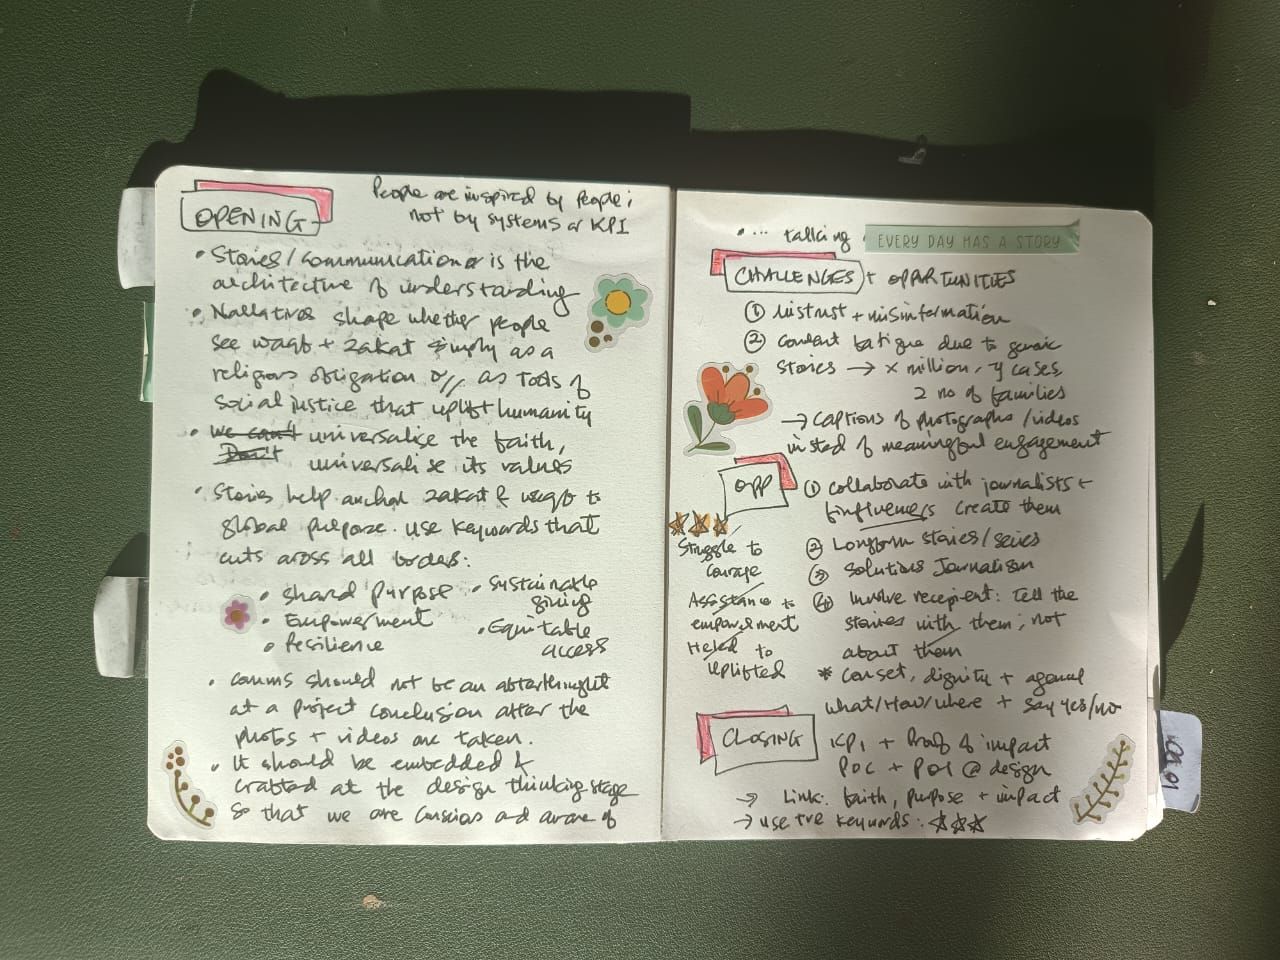 OPENING
People are inspired by People;
not by systems or KPI
• Stories/communication is the
architecture of understanding
• Narratives shape whether people
see waqf + zakat simply as a
religious obligation or as tools of
social justice that uplift humanity
• we can't universalise the faith,
Don't universalise its values
• Stories help anchor zakat & waqf to
global purpose. Use keywords that
cuts across all borders:
• Shared Purpose • Sustainable
giving
• Empowerment • Equitable
access
• resilience
• Comms should not be an afterthought
at a project conclusion after the
photos + videos are taken.
• It should be embedded &
crafted at the design thinking stage
so that we are conscious and aware of
• ... talking
EVERY DAY HAS A STORY
CHALLENGES + OPPORTUNITIES
① Mistrust + misinformation
② content fatigue due to generic
stories → x million, y cases,
2 no of families
→ captions of photographs/videos
insted of meaningful engagement
OPP
① collaborate with journalists +
influencers create them
② Longform stories/series
③ Solutions Journalism
④ Involve recepient: Tell the
stories with them; not
about them
* Conset, dignity + agency
What/How/where + say yes/no
Struggle to
courage
Assistance to
empowerment
Helped to
uplifted
CLOSING
KPI + Proof of impact
POC + POI @ design
→ Link: faith, purpose + impact
→ use +ve keywords: ☆☆☆